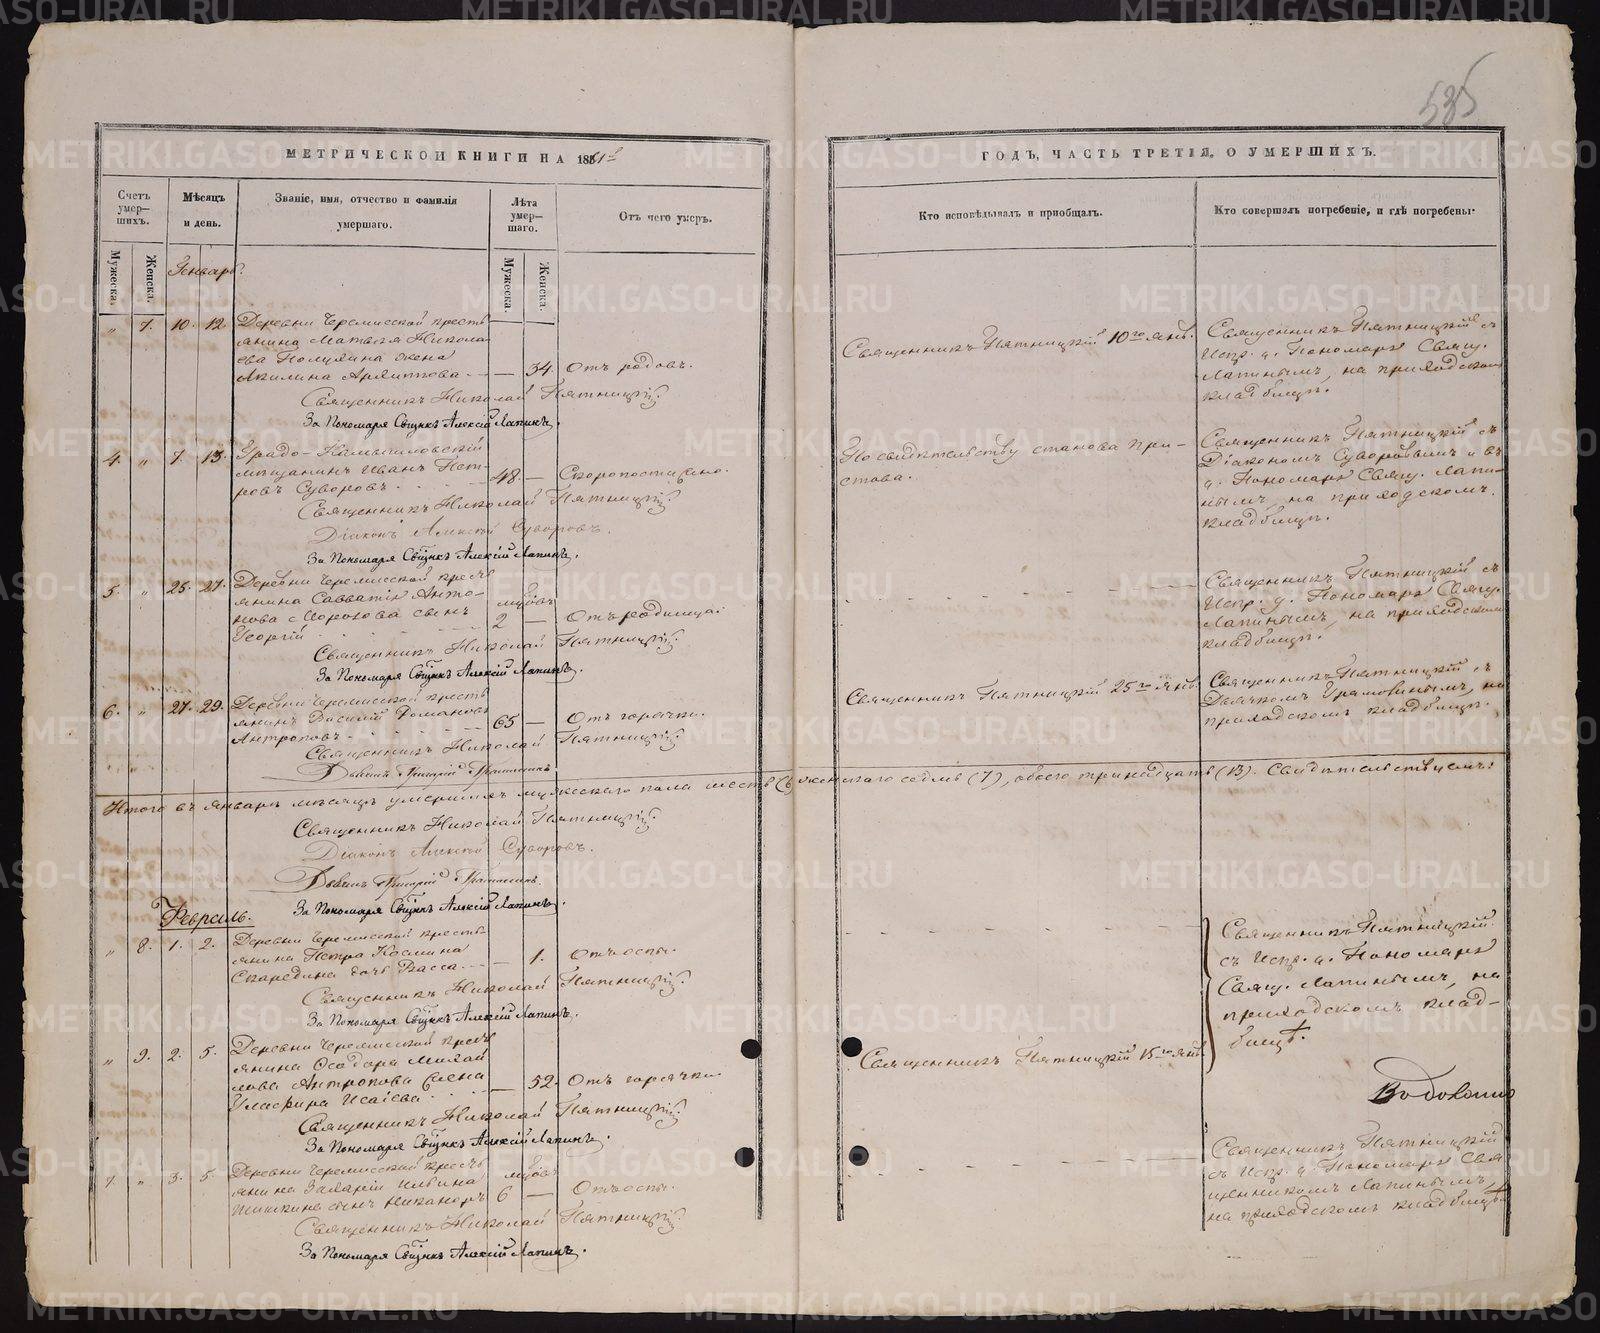 535
МЕТРИЧЕСКОЙ КНИГИ НА 1861й
ГОДЪ, ЧАСТЬ ТРЕТІЯ, О УМЕРШИХЪ.
Счетъ умер—шихъ.
Мѣсяцъ и день.
Званіе, имя, отчество и фамилія умершаго.
Лѣта умер—шаго.
Отъ чего умеръ.
Кто исповѣдывалъ и пріобщалъ.
Кто совершалъ погребеніе, и гдѣ погребены.
Мужеска.
Женска.
Мужеска.
Женска.
Январь.
„ 7. 10. 12. Деревни Черемисской кресть
янина Матвѣя Никола
ева Полухина жена
Акилина Архиппова — 34. Отъ родовъ.
Священникъ Николай Пятницкій.
За Пономаря Свщнкъ Алексій Лапинъ.
Священникъ Пятницкій 10го янв.
Священникъ Пятницкій съ
Испр. д. Пономаря Свящ.
Лапинымъ, на приходскомъ
кладбищѣ.
4. „ 7. 13. Градо-Камышловскій
мѣщанинъ Иванъ Пет-
ровъ Суворовъ. 48. — Скоропостижно.
Священникъ Николай Пятницкій.
Діаконъ Алексѣй Суворовъ.
За Пономаря Свщнкъ Алексій Лапинъ.
По свидѣтельству станова при-
става.
Священникъ Пятницкій съ
Діакономъ Суворовымъ и въ
д. Пономаря Свящ. Лапи-
нымъ, на приходскомъ
кладбищѣ.
5. „ 25. 27. Деревни Черемисской крест
янина Савватія Анто-
нова Морозова сынъ
Георгій мцовъ 2 — Отъ родимца.
Священникъ Николай Пятницкій.
За Пономаря Свщнкъ Алексій Лапинъ.
Священникъ Пятницкій съ
Испр. д. Пономаря Свящ.
Лапинымъ, на приходскомъ
кладбищѣ.
6. „ 27. 29. Деревни Черемисской кресть
янинъ Василій Романовъ
Антроповъ 65 — Отъ горячки.
Священникъ Николай Пятницкій.
Дьячекъ Григорій
Священникъ Пятницкій 25го янв.
Священникъ Пятницкій съ
Дьячкомъ на
приходскомъ кладбищѣ.
Итого въ январѣ мѣсяцѣ умершихъ мужескаго пола шесть (6) женскаго седмь (7), обоего тринадцать (13). Свидѣтельствуемъ:
Священникъ Николай Пятницкій.
Діаконъ Алексѣй Суворовъ.
Дьячекъ Григорій
За Пономаря Свщнкъ Алексій Лапинъ.
Февраль.
„ 8. 1. 2. Деревни Черемисской кресть
янина Петра Космина
Скаредина дочь Васса. — 1. Отъ оспы.
Священникъ Николай Пятницкій.
За Пономаря Свщнкъ Алексій Лапинъ.
Священникъ Пятницкій
съ Испр. д. Пономаря
Свящ. Лапинымъ, на
приходскомъ клад-
бищѣ.
„ 9. 2. 5. Деревни Черемисской крест
янина Ѳеодора Михай
лова Антропова жена
Гликерія Исаіева — 52. Отъ горячки.
Священникъ Николай Пятницкій.
За Пономаря Свщнкъ Алексій Лапинъ.
Священникъ Пятницкій 15го янв.
7. „ 3. 5. Деревни Черемисской крест
янина Захаріи Ильина
Шишкина сынъ Никаноръ мцовъ 6 — Отъ оспы.
Священникъ Николай Пятницкій.
За Пономаря Свщнкъ Алексій Лапинъ.
Священникъ Пятницкій
съ Испр. д. Пономаря Свя
щенникомъ Лапинымъ,
на приходскомъ кладбищѣ.
METRIKI.GASO-URAL.RU